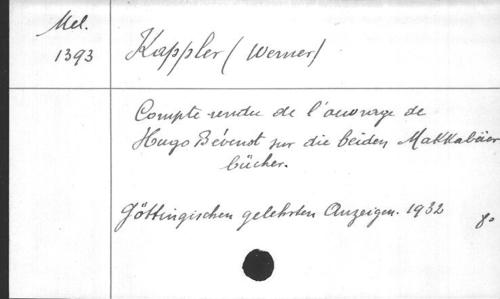 Mel.
1393
Kappler (Werner)
Compte rendu de l'ouvrage de
Hugo Bévenot sur die beiden Makkabäer
bücher.
Göttingischen gelehrten Anzeigen. 1932
8°